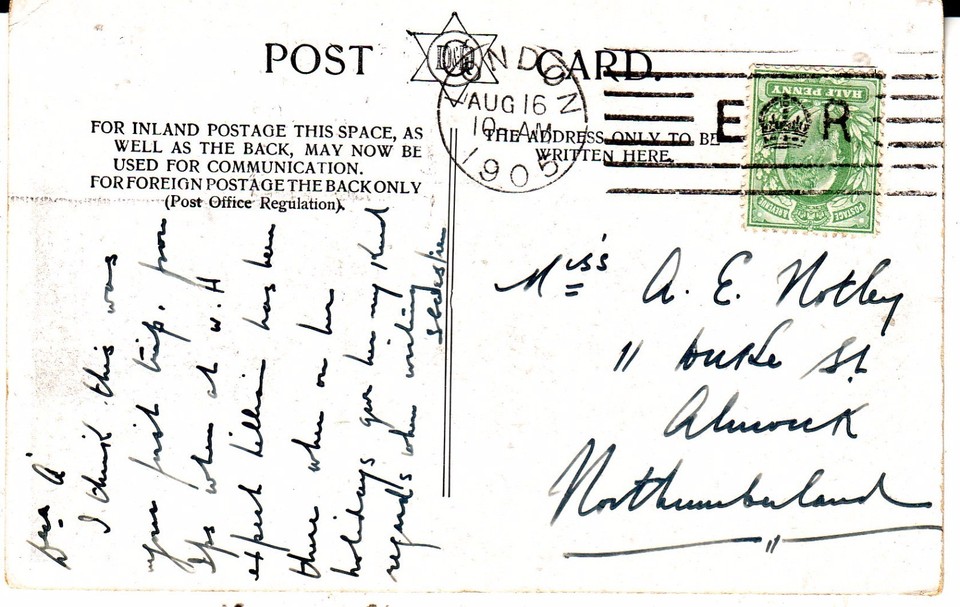 POST CARD.
LONDON
AUG 16
10 AM
1905
E R
HALF PENNY
POSTAGE REVENUE
FOR INLAND POSTAGE THIS SPACE, AS
WELL AS THE BACK, MAY NOW BE
USED FOR COMMUNICATION.
FOR FOREIGN POSTAGE THE BACK ONLY
(Post Office Regulation).
THE ADDRESS ONLY TO BE
WRITTEN HERE.
Dear A
I think this was
your first trip. from
when at W. H
expect Lillian has been
there when on her
holidays give her my kind
regard's when writing
Miss A. E. Notley
11 Duke St
Alnwick
Northumberland